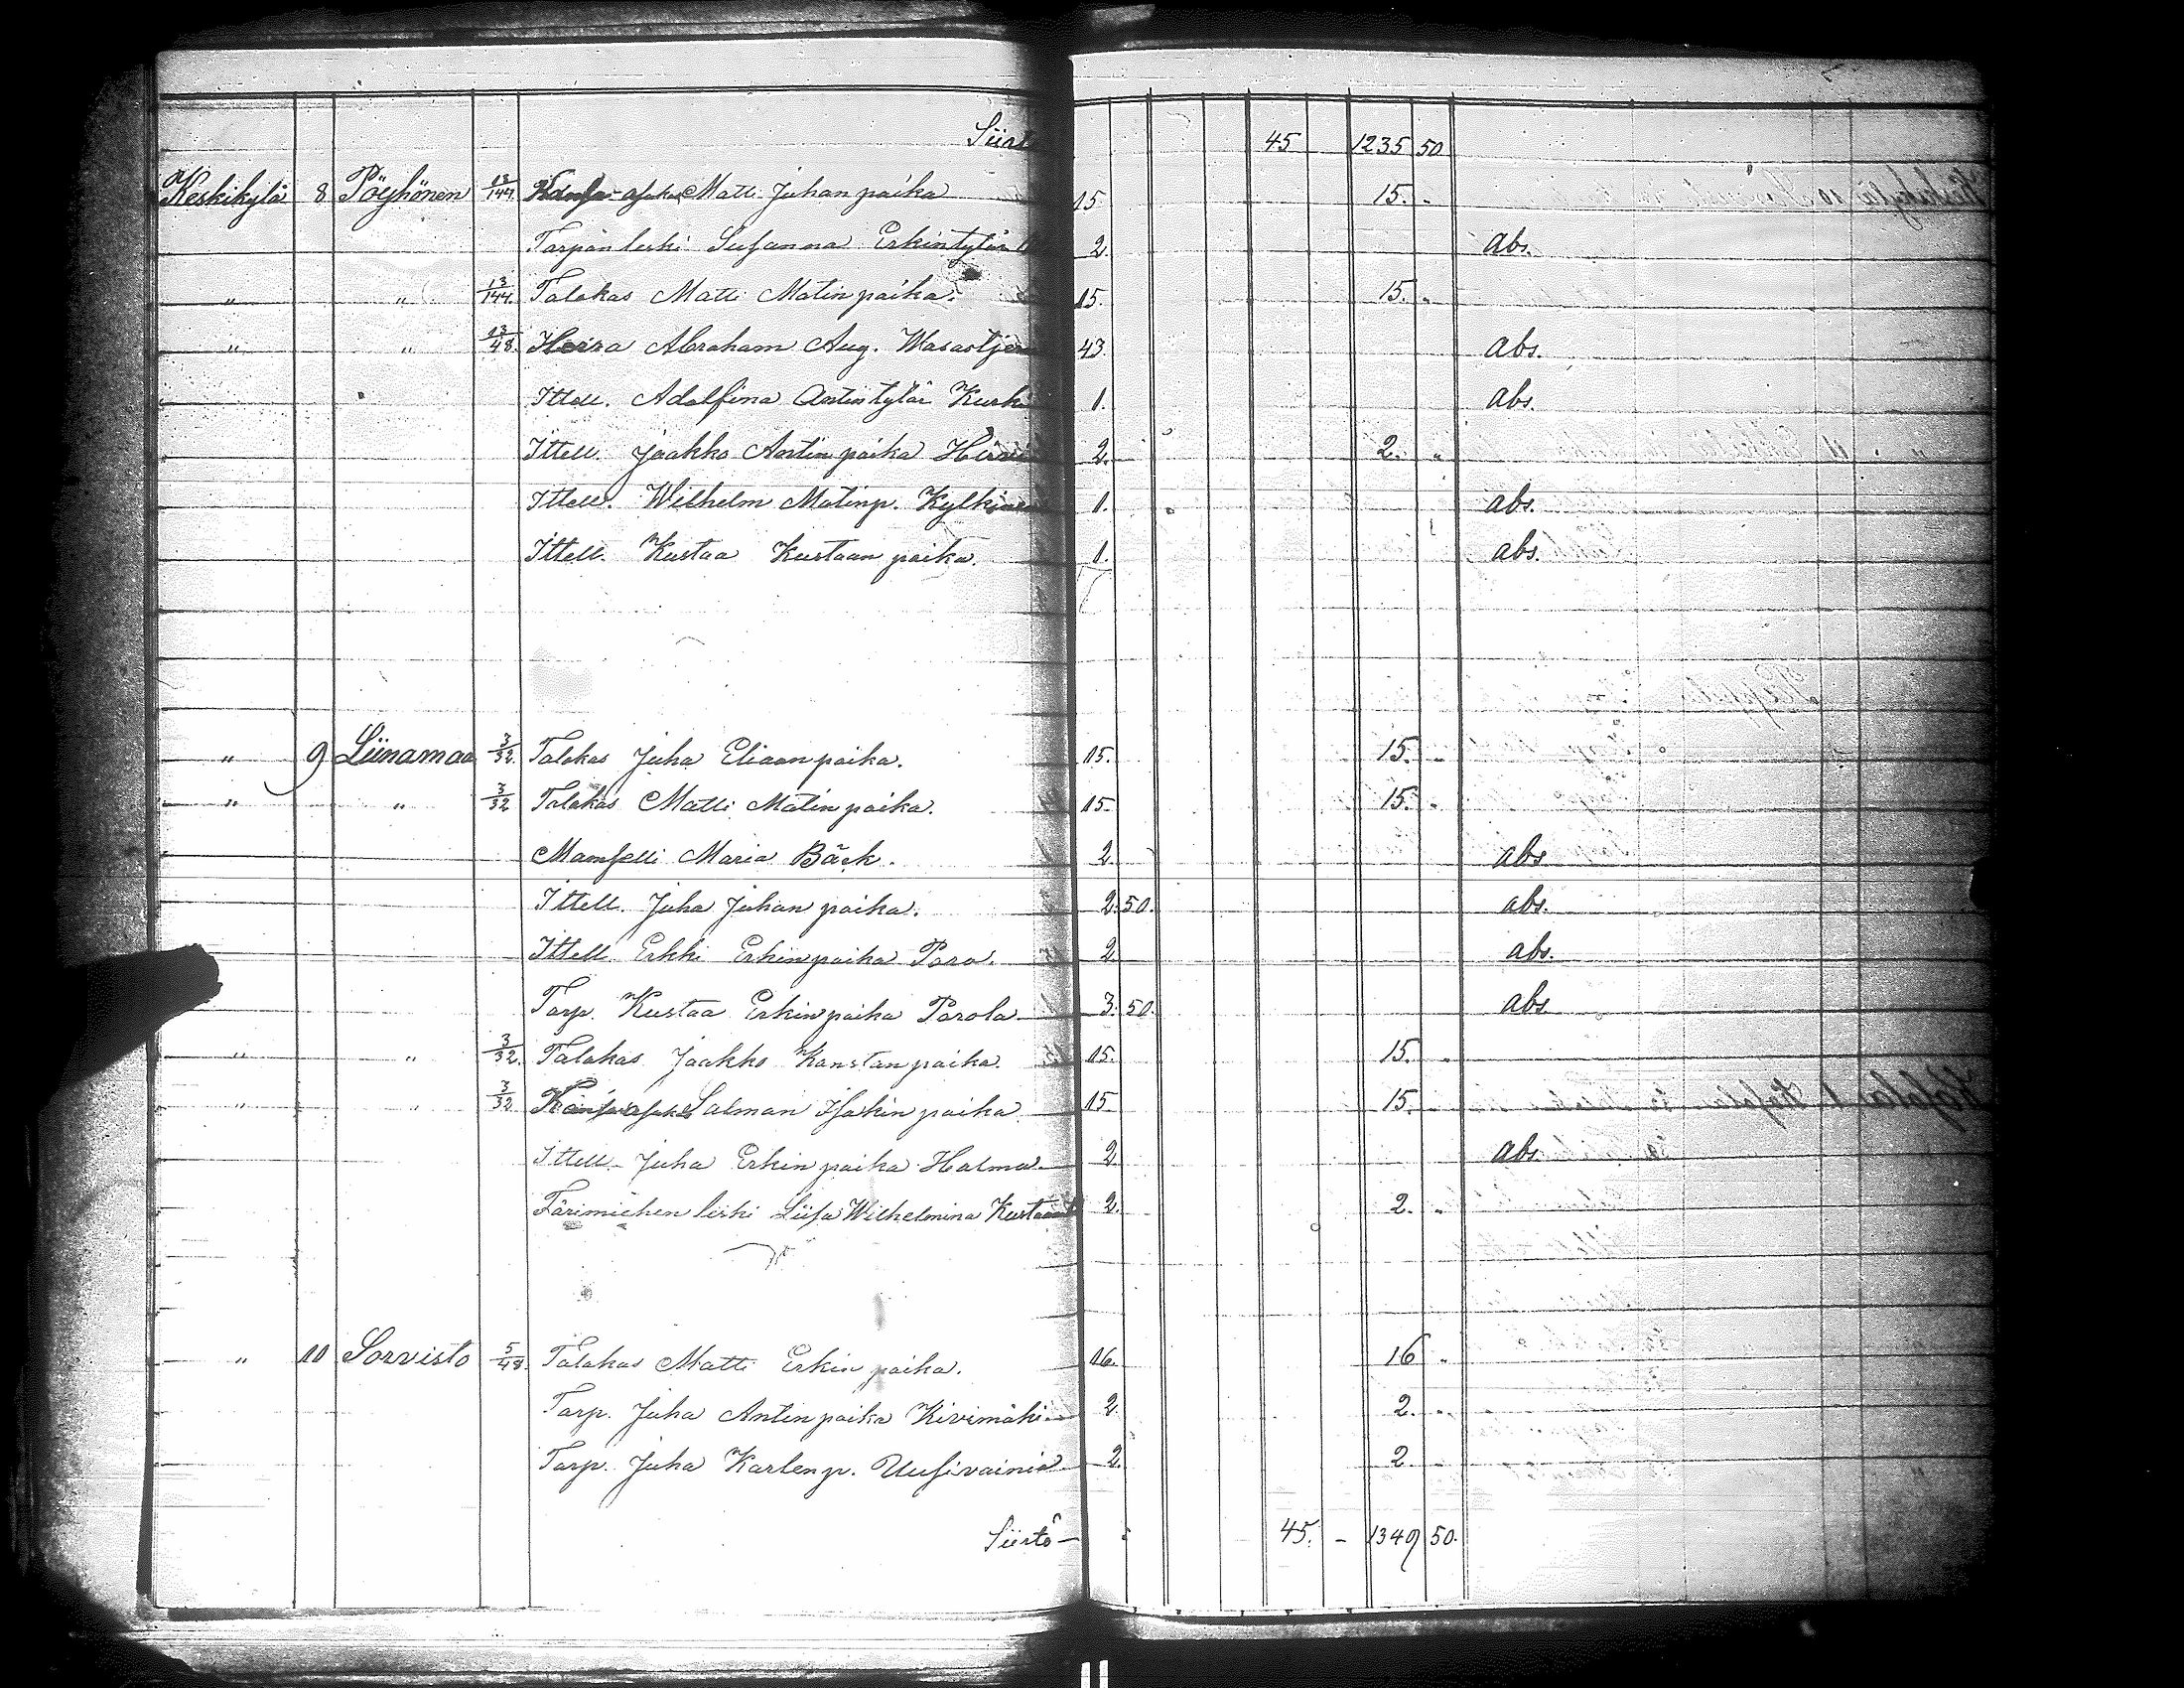 Siirt 45 1235 50
Keskikylä 8 Pöyhönen 13/144 Matti Juhan poika 15 15. "
Torpan leski Susanna Erkintytär 2. abs.
" " 13/144 Talokas Matti Matin poika. 15. 15. "
" " 13/48 Herra Abraham Aug. Wasastjer 43. abs.
Ittell. Adolfina Antintytär Kurki 1. abs.
Ittell. Jaakko Antin poika Hirvi 2. 2. "
Ittell. Wilhelm Matinp. 1. abs.
Ittell. Kustaa Kustaan poika. 1. abs.
" 9 Liinamaa 3/32. Talokas Juha Eliaan poika. 15. 15. "
" " 3/32 Talokas Matti Matin poika. 15. 15. "
Mamselli Maria Bäck. 2. abs
Ittell. Juha Juhan poika. 2. 50. abs.
Ittell. Erkki Erkin poika Para. 2. abs.
Torp. Kustaa Erkin poika Parola 3. 50. abs.
" " 3/32. Talokas Jaakko Konstan poika. 15. 15. "
" " 3/32 Salman Isakin poika 15. 15. "
Ittell. Juha Erkin poika Halma 2. abs.
Färimiehen leski Liisa Wilhelmina Kustaant 2. 2. "
" 10 Sorvisto 5/48. Talokas Matti Erkin poika. 16. 16 "
Torp. Juha Antin poika Kivimäki 2. 2. "
Torp. Juha Karlen p. Uusivainio 2. 2 "
Siirtö — 45. – 1349 50.